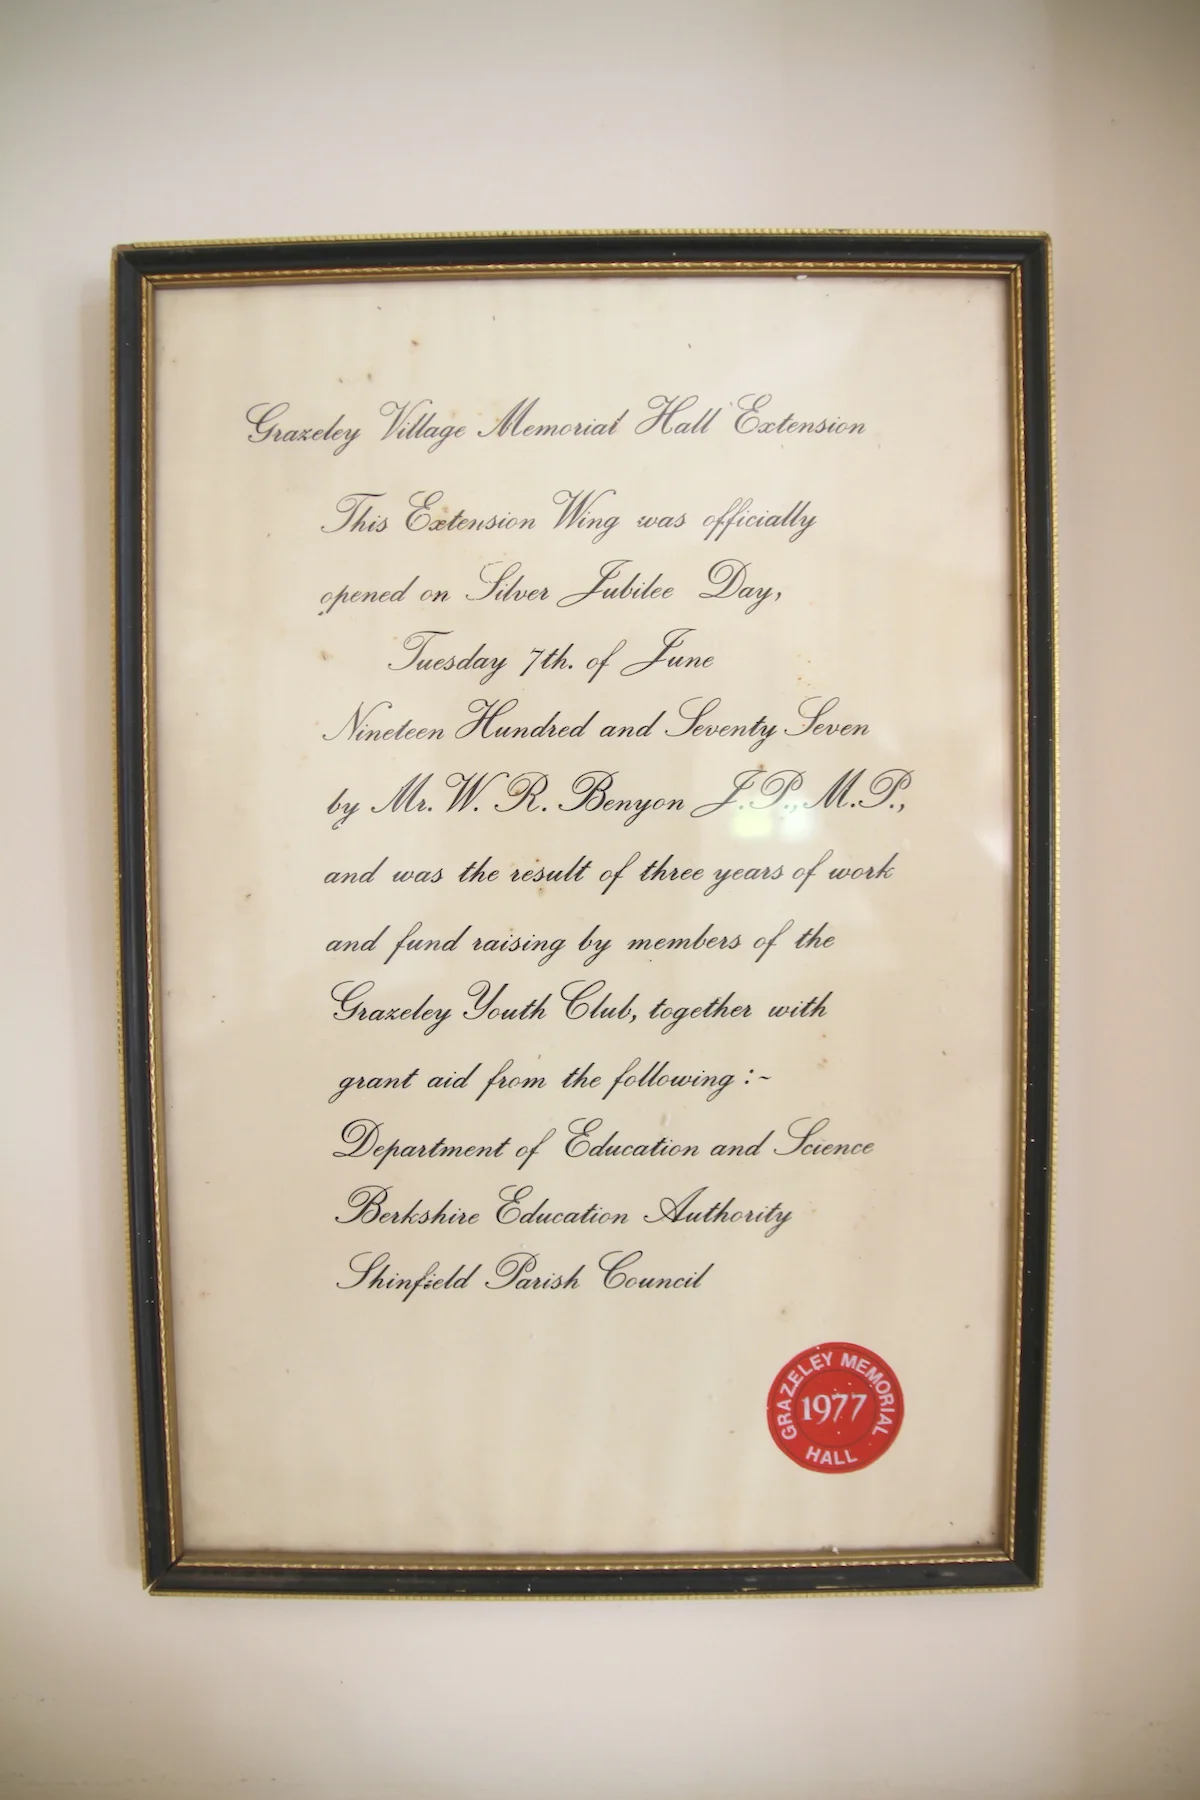 Grazeley Village Memorial Hall Extension
This Extension Wing was officially
opened on Silver Jubilee Day,
Tuesday 7th. of June
Nineteen Hundred and Seventy Seven
by Mr. W. R. Benyon J.P., M.P.,
and was the result of three years of work
and fund raising by members of the
Grazeley Youth Club, together with
grant aid from the following :-
Department of Education and Science
Berkshire Education Authority
Shinfield Parish Council
GRAZELEY MEMORIAL
1977
HALL